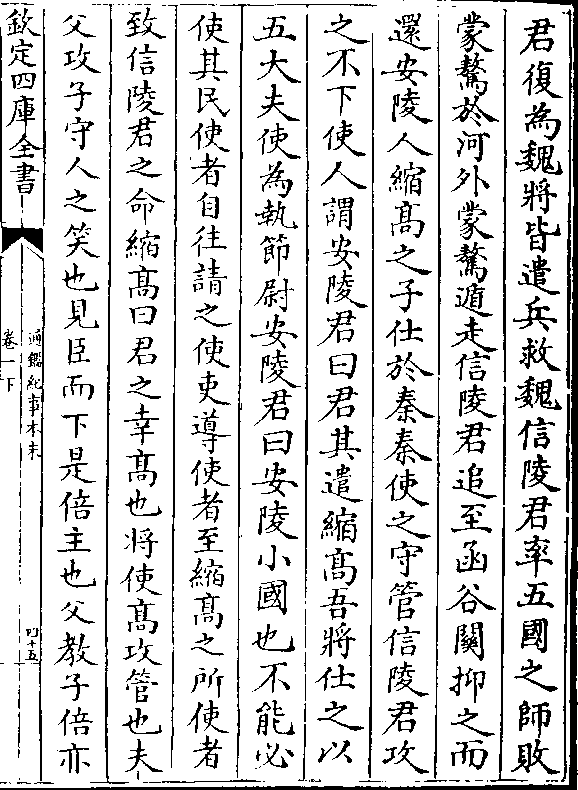 君復為魏將皆遣兵救魏信陵君率五國之師敗
蒙驁於河外蒙驁遁走信陵君追至函谷關抑之而
還安陵人縮髙之子仕於秦秦使之守管信陵君攻
之不下使人謂安陵君曰君其遣縮髙吾將仕之以
五大夫使為執節尉安陵君曰安陵小國也不能必
使其民使者自往請之使吏導使者至縮髙之所使者
致信陵君之命縮髙曰君之幸髙也將使髙攻管也夫
父攻子守人之笑也見臣而下是倍主也父教子倍亦
欽定四庫全書
通鑑紀事本末
卷一下
四十五